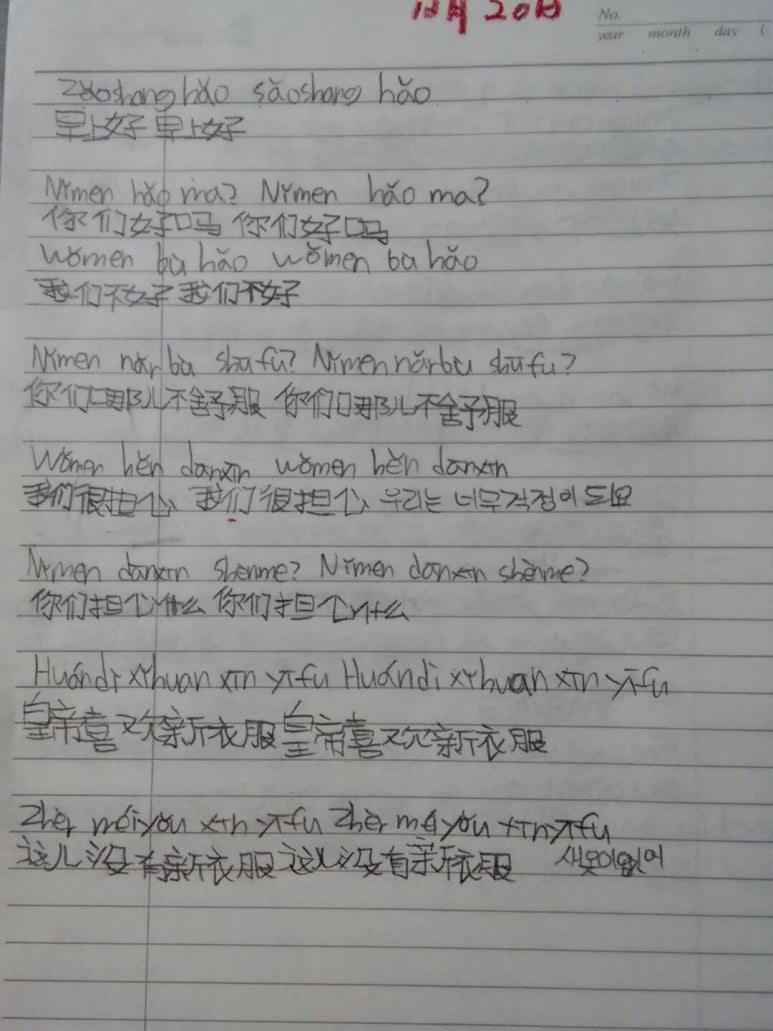 12月 20日
No.
year month day (
Zǎoshang hǎo sǎoshang hǎo
早上好 早上好
Nǐmen hǎo ma? Nǐmen hǎo ma?
你们好吗 你们好吗
Wǒmen bù hǎo wǒmen bù hǎo
我们不好 我们不好
Nǐmen nǎr bù shūfu? Nǐmen nǎr bù shūfu?
你们哪儿不舒服 你们哪儿不舒服
Wǒmen hěn dānxīn wǒmen hěn dānxīn
我们很担心 我们很担心 우리는 너무걱정이 되요
Nǐmen dānxīn shénme? Nǐmen dānxīn shénme?
你们担心什么 你们担心什么
Huándì xǐhuan xīn yīfu Huándì xǐhuan xīn yīfu
皇帝喜欢新衣服 皇帝喜欢新衣服
Zhèr méiyǒu xīn yīfu Zhèr méiyǒu xīn yīfu
这儿没有新衣服 这儿没有新衣服 새옷이없어